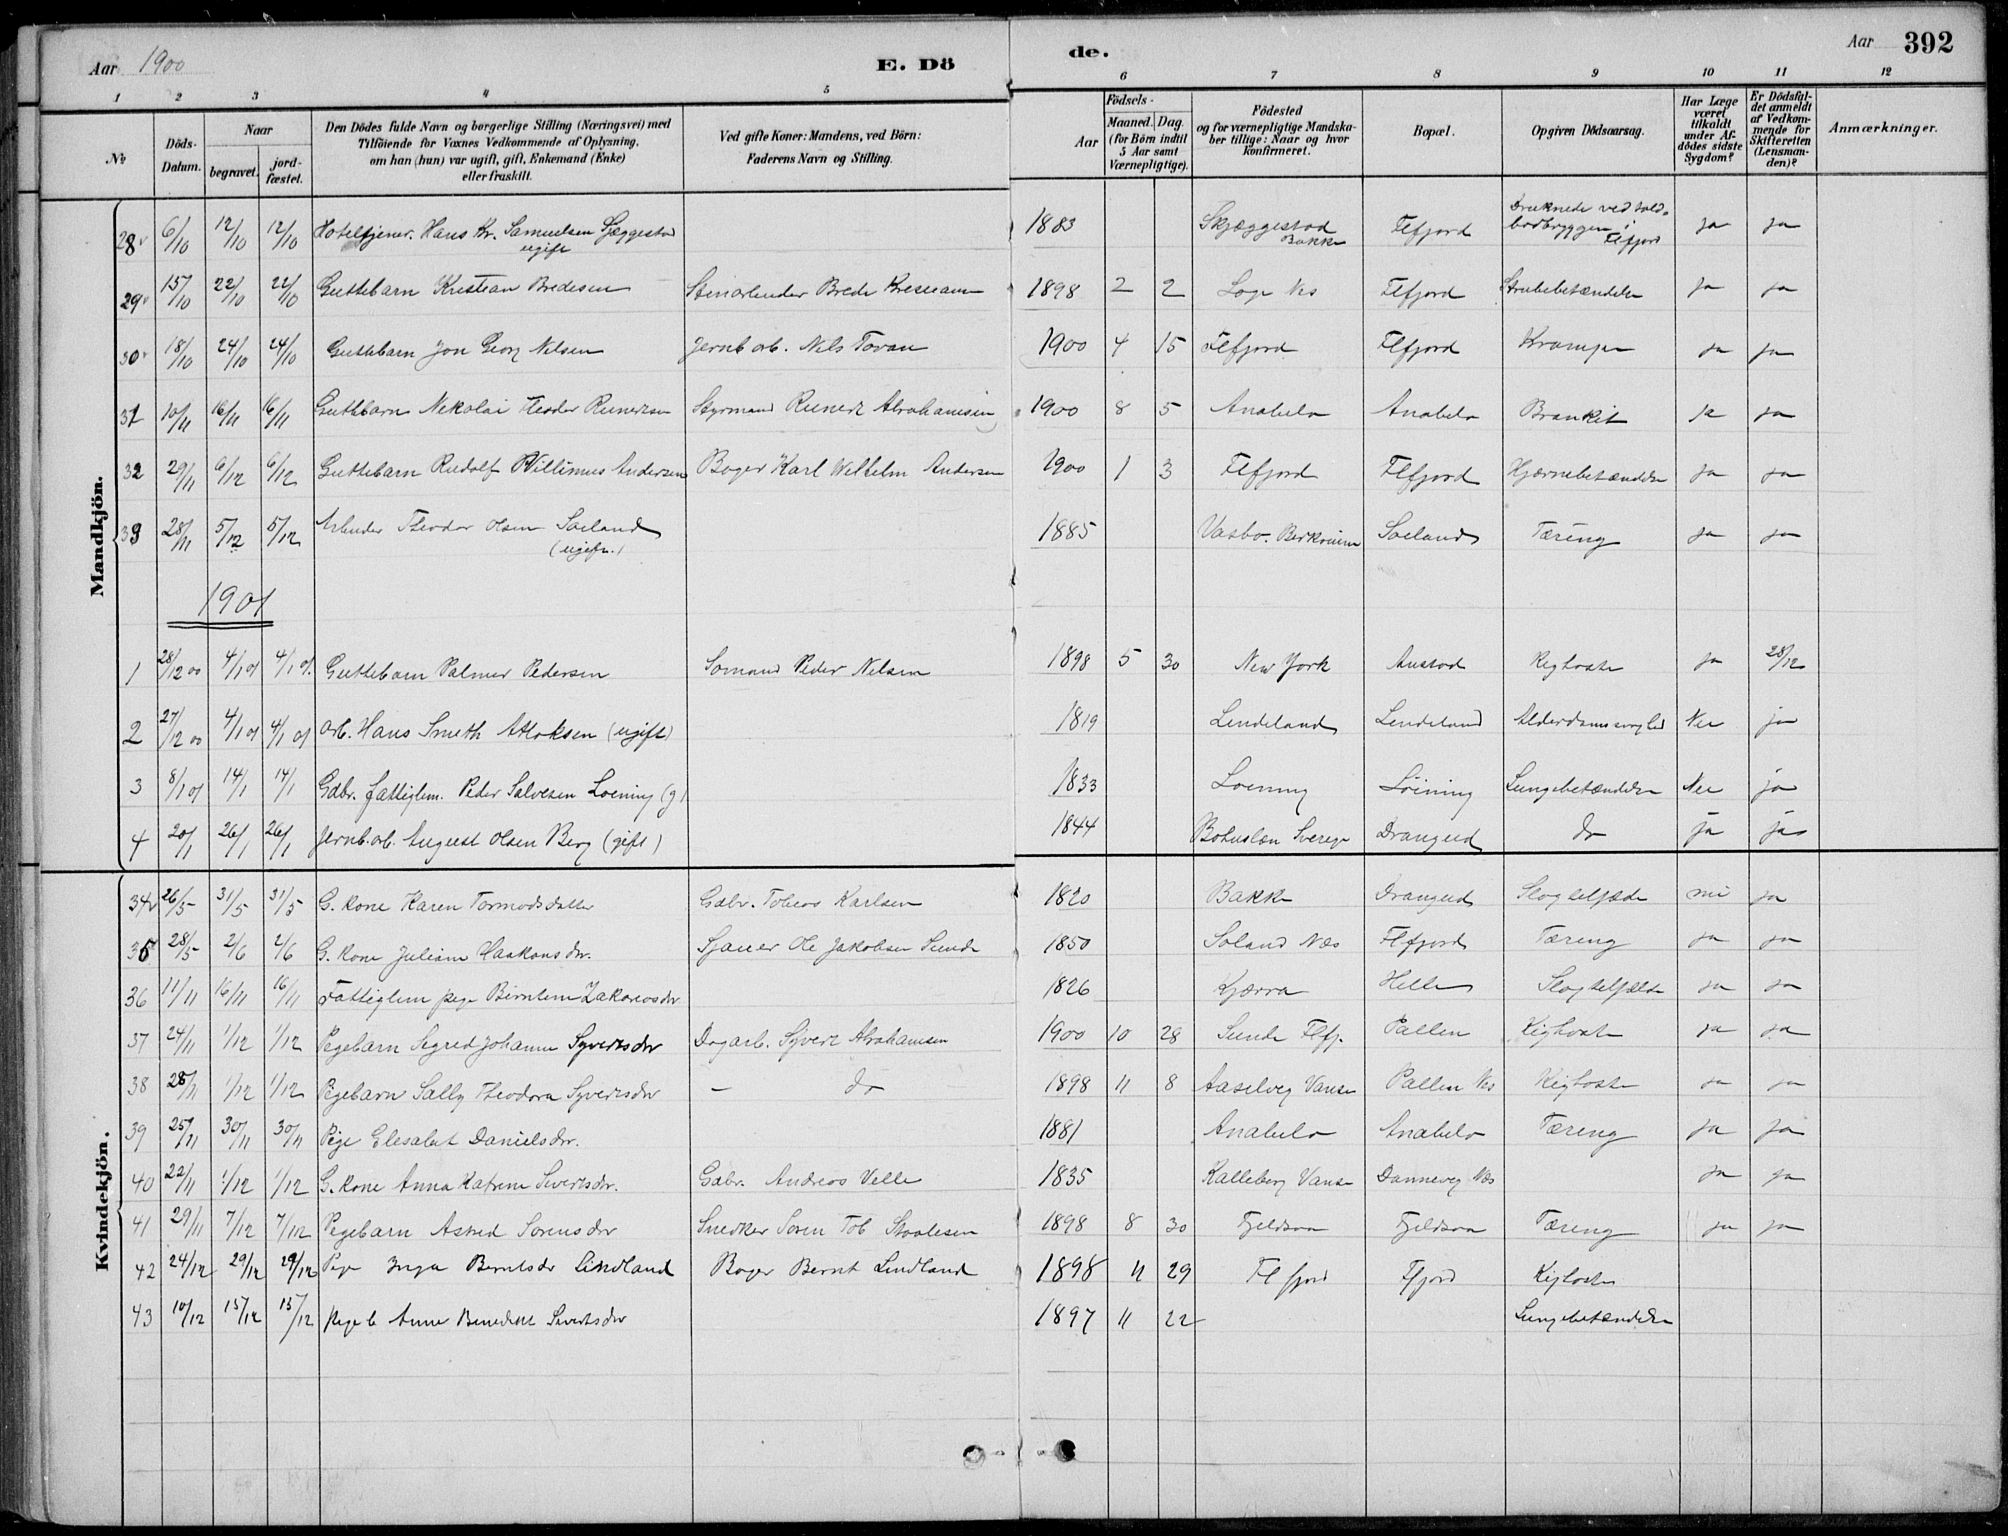 Aar 1900
E. Dö
de.
Aar 392
1 2 3 4 5 6 7 8 9 10 11 12
No
Döds-Datum.
Naar
begravet.
jord-fæstet.
Den Dödes fulde Navn og borgerlige Stilling (Næringsvei) med
Tilföiende for Voxnes Vedkommende af Oplysning,
om han (hun) var ugift, gift, Enkemand (Enke)
eller fraskilt.
Ved gifte Koner: Mandens, ved Börn:
Faderens Navn og Stilling.
Födsels-
Aar
Maaned. Dag.
(for Börn indtil
5 Aar samt
Værnepligtige).
Födested
og for værnepligtige Mandska-
ber tillige: Naar og hvor
konfirmeret.
Bopæl.
Opgiven Dödsaarsag.
Har Læge
været
tilkaldt
under Af-
dödes sidste
Sygdom?
Er Dödsfal-
det anmeldt
af Vedkom-
mende for
Skifteretten
(Lensman-
den)?
Anmærkninger.
Mandkjön.
28 6/10 12/10 12/10 Hoteltjener. Hans Kr. Samuelsen Sjæggestad ugift 1883 Skjæggestad Bakke Flfjord Druknede ved told-bodbryggen i Flfjord ja ja
29 15/10 22/10 22/10 Guttebarn Kristian Bredesen Stenarbeider Brede 1898 2 2 Loge Nes Flfjord Strubebetændelse ja ja
30 18/10 24/10 24/10 Guttebarn Jon Georg Nilsen Jernb arb. Nils Tovan 1900 4 15 Flfjord Flfjord Kramper ja ja
31 10/11 16/11 16/11 Guttebarn Nekolai Teodor Reinertsen Styrmand Reinert Abrahamsen 1900 8 5 Anabelo Anabelo Bronkit ja ja
32 29/11 6/12 6/12 Guttebarn Rudolf Villimus Andersen Bager Karl Wilhelm Andersen 1900 1 3 Flfjord Flfjord Hjernebetændelse ja ja
33 28/11 5/12 5/12 Arbeider Theodor Olsen Soeland (ugift.) 1885 Vasbo. Soeland Tæring ja ja
1901
1 28/12 00 4/1 01 4/1 01. Guttebarn Palmer Pedersen Somand Peder Nilsen 1898 5 30 New York Austad Kighoste ja 28/12
2 27/12 00 4/1 01 4/1 01 Arb. Hans Smith Atloksen (ugift) 1819 Lendeland Lendeland Alderdomssvaghed Nei ja
3 8/1 01 14/1 14/1 Gdbr. fattiglem. Peder Salvesen Loening (g) 1833 Loening Löining Lungebetændelse Nei ja
4 20/1 26/1 26/1 Jernb. arb. August Olsen Berg (gift) 1844 Bohuslæn Sverige Drangeid do ja ja
Kvindekjön.
34 26/5 31/5 31/5 G. kone Karen Tormodsdatter Gdbr. Tobias Karlsen 1820 Bakke Drangeid Slagtilfælde nei ja
35 28/5 2/6 2/6 G. kone Juliane Haakonsdtr. Sjauer Ole Jakobsen Sunde 1850 Soland Næs Flfjord Tæring ja ja
36 11/11 16/11 16/11 Fattiglem pige Berntine Zakariasdtr 1826 Kjærra Helle Slagtilfælde ja ja
37 24/11 1/12 1/12 Pigebarn Segred Johanne Syvertsdtr Dagarb. Syvert Abrahamsen 1900 10 28 Sunde Flfj. Pallen Kighoste ja ja
38 28/11 1/12 1/12 Pigebarn Sally Theodora Syvertsdtr — do 1898 11 8 Aaselveg Vanse Pallen Nes Kighoste ja ja
39 25/11 30/11 30/11 Pige Elesabet Danielsdtr. 1881 Anabelo Anabelo Tæring ja ja
40 22/11 1/12 1/12 G. kone Anna Katrine Sivertsdtr. Gdbr. Andreas Velle 1835 Kalleberg Vanse Danneveg Næs ja ja
41 29/11 7/12 7/12 Pigebarn Astred Sorensdtr Snedker Soren Tob Staalesen 1898 8 30 Fjeldsaa Fjeldsaa Tæring ja ja
42 24/12 29/12 29/12 Pige Inga Berntsdtr Lindland Bager Bernt Lindland 1898 11 29 Flfjord Ffjord Kighoste
43 10/12 15/12 15/12 Pige b Anne Benedikte Sivertsdtr 1897 11 22 Lungebetændelse